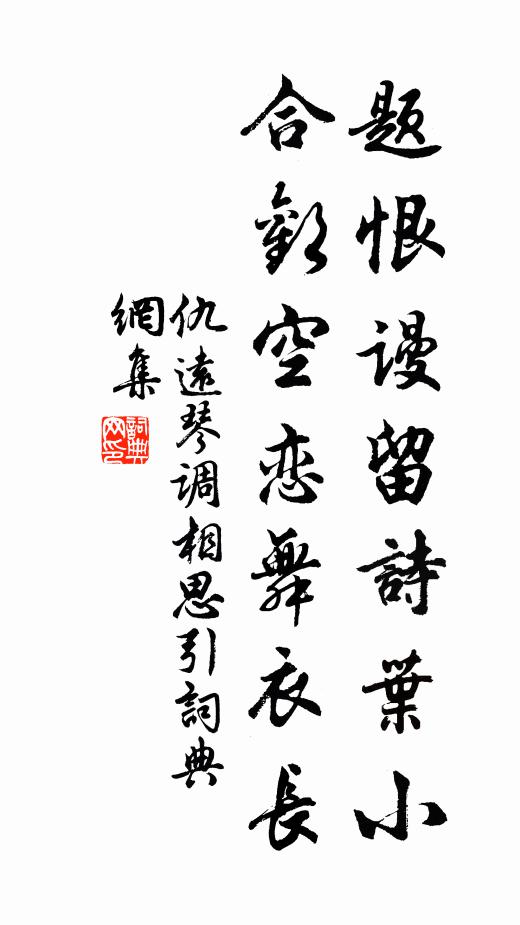 题恨谩留詩葉小
合歡空恋舞衣長
仇遠琴调相思引詞典
網集
詞典网印